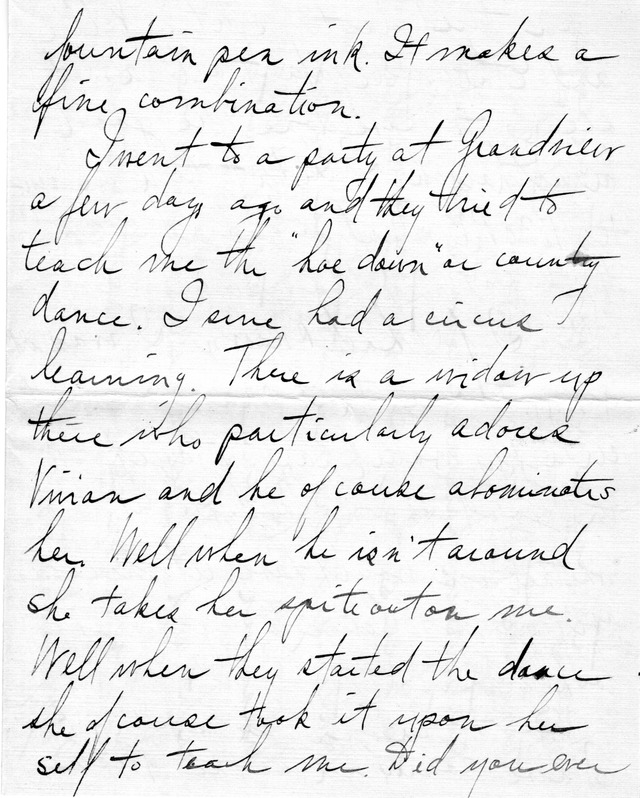 fountain pen ink. It makes a
fine combination.
I went to a party at Grandview
a few days ago and they tried to
teach me the "hoe down" or country
dance. I sure had a circus
learning. There is a widow up
there who particularly adores
Vivian and he of course abominates
her. Well when he isn't around
she takes her spite out on me.
Well when they started the dance
she of course took it upon her
self to teach me. Did you ever